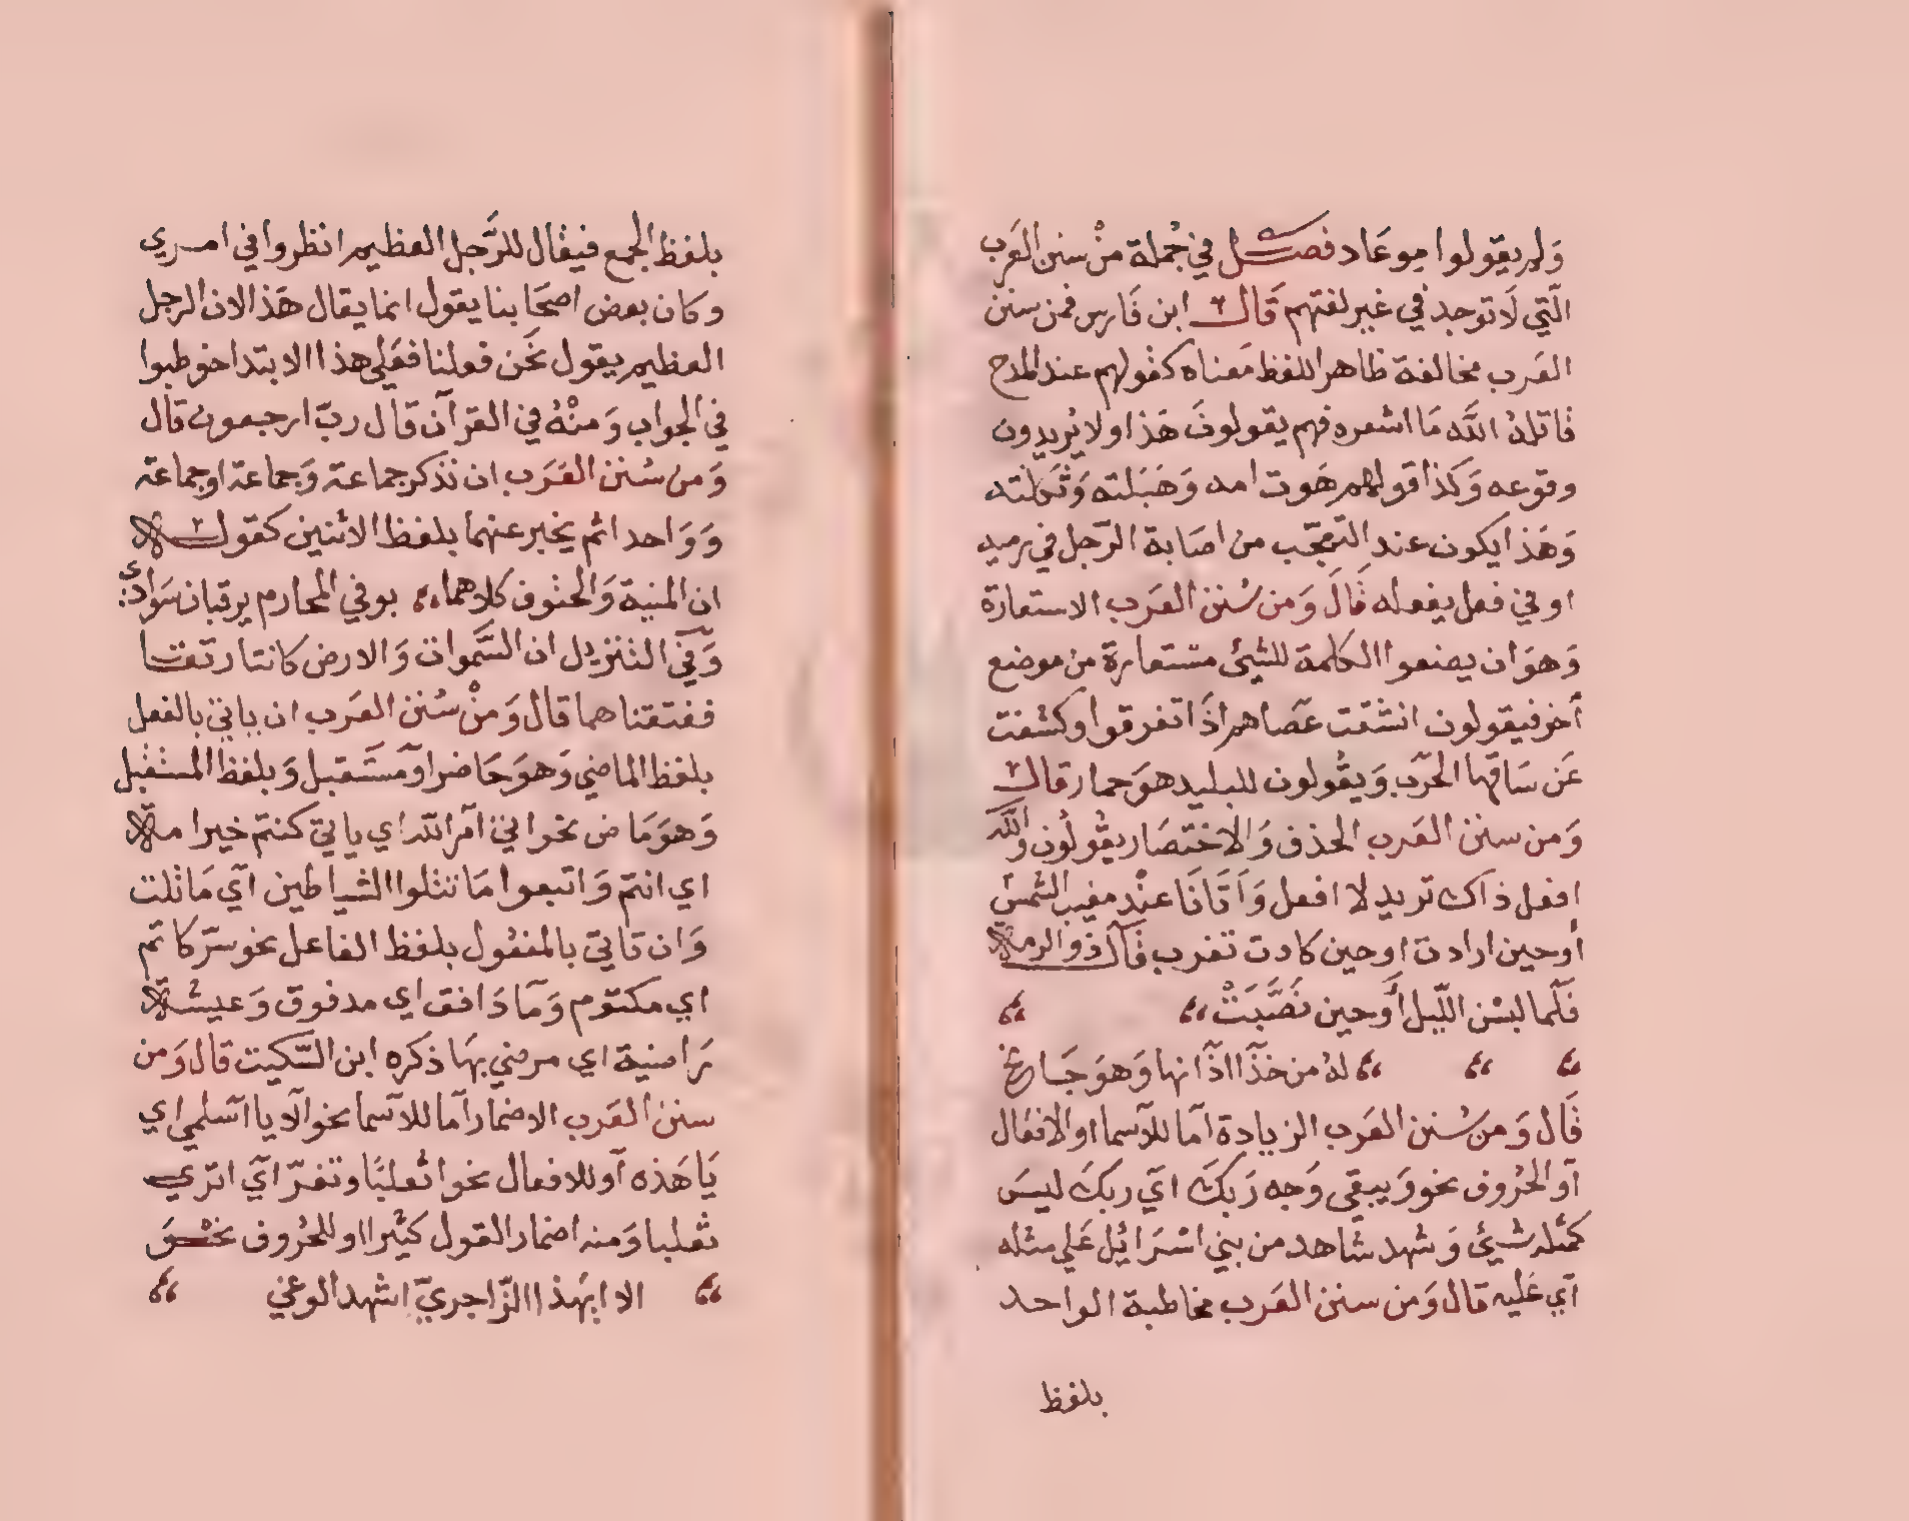 وَلم يقولوا ميوعَاد فصـــل في جُملة منْ سنن العَرب
الّتي لَا توجد في غير لغتهم قَالــ ابن فَارس فمن سنن
العَرب مخالفة ظاهر اللفظ مَعناه كقولهم عند المدح
قاتلهُ الله مَا اشعره فهم يقولونَ هَذا ولا يُريدون
وقوعه وَكَذا قولهم هَوت امه وَهَبَلته وَثَكلته
وَهَذا يكون عند التّعجّب من اصَابة الرّجل في رميه
او في فعل يفعله قَالَ وَمن سُنن العَرب الاستعارة
وَهوَ ان يضعوا الكلمة للشيئ مستعارة من موضع
أخر فيقولون انشقت عصَاهم اذَا تفرقوا وكشفت
عَن سَاقها الحرَب وَيقُولون للبليد هوَ حمار قالــ
وَمن سنن العَرب الحذف وَالاختصَار يقُولُون والله
افعل ذاك تريد لا افعل وَأتَانَا عنْد مغيب الشمس
أوحين ارادت اوحين كادت تغرب قَالــ ذو الرمــة
فَلَما لبسْن اللّيل أوَحين نَصَّبَتْ
لهُ من خذَا اذَانها وَهوَ جَانح
قَال وَمن سُنن العَرب الزيادة اَما للأسما او الافعَال
اَو الحُروف نحو وَيبقى وَجه رَبكَ اَي ربكَ ليسَ
كمثله شيئ وَشهد شَاهد من بني اسْرَائيل عَلي مثله
اَي عَليه قال وَمن سنن العَرب مخاطبة الواحد
بلفظ
بلفظ الجمع فيقال للرَّجل العظيم انظروا في امــري
وكان بعض اصحَابنا يقول انما يقال هَذا لان الرجل
العظيم يقول نَحن فعلنا فعَلي هذا الابتدا خوطبوا
في الجواب وَمنْهُ في القرآن قال ربّ ارجعون قال
وَمن سُنن العَرَب ان نذكر جماعة وَجماعة اوجماعة
وَوَاحدا ثم يخبر عنهما بلفظ الاثنين كقولــه
ان المنية وَالحتوف كلاهما يوفي المحارم يرقبان سَوَادي
وَفي التنزيل ان السَّموات وَالارض كانتا رتقــا
ففتقناهما قال وَمنْ سُنن العَرب ان ياتي بالفعل
بلفظ الماضي وَهوَ حَاضر اَو مُستَقبل وَبلفظ المستقبل
وَهوَ مَاض نحو اتيَ اَمر الله اي ياتي كنتم خير امــة
اي انتم وَاتبعوا مَا تتلوا الشياطين اَي مَا تلت
وَان تاتي بالمفعول بلفظ الفاعل نحو سرّ كاتم
اي مكتوم وَمَا دَافق اي مدفوق وَعيشــة
رَاضية اي مرضي بهَا ذكره ابن السّكيت قال وَمن
سنن العَرب الاضمار اَما للاَسما نحو اَلا يا اَسلمي اي
يَا هَذه اَو للافعال نحو اثعلبًا وتفرّ اَي اتري
ثعلبا وَمنه اضمار القول كثيرا او للحُروف نحْــوَ
الا ابهَذا الزّاجريّ اشهد الوغي